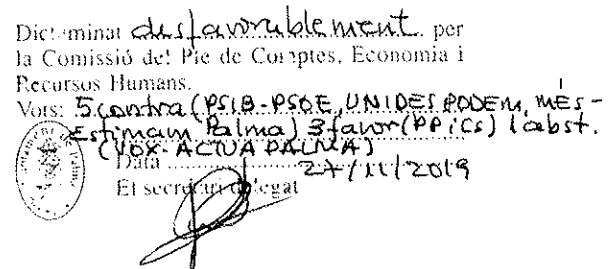 Dictaminat desfavorablement per
la Comissió del Ple de Comptes, Economia i
Recursos Humans.
Vots: 5 contra (PSIB-PSOE, UNIDES PODEM, MÉS-
Estimam Palma) 3 favor (PP i Cs) 1 abst.
(VOX-ACTUA PALMA)
Data 27/11/2019
El secretari delegat